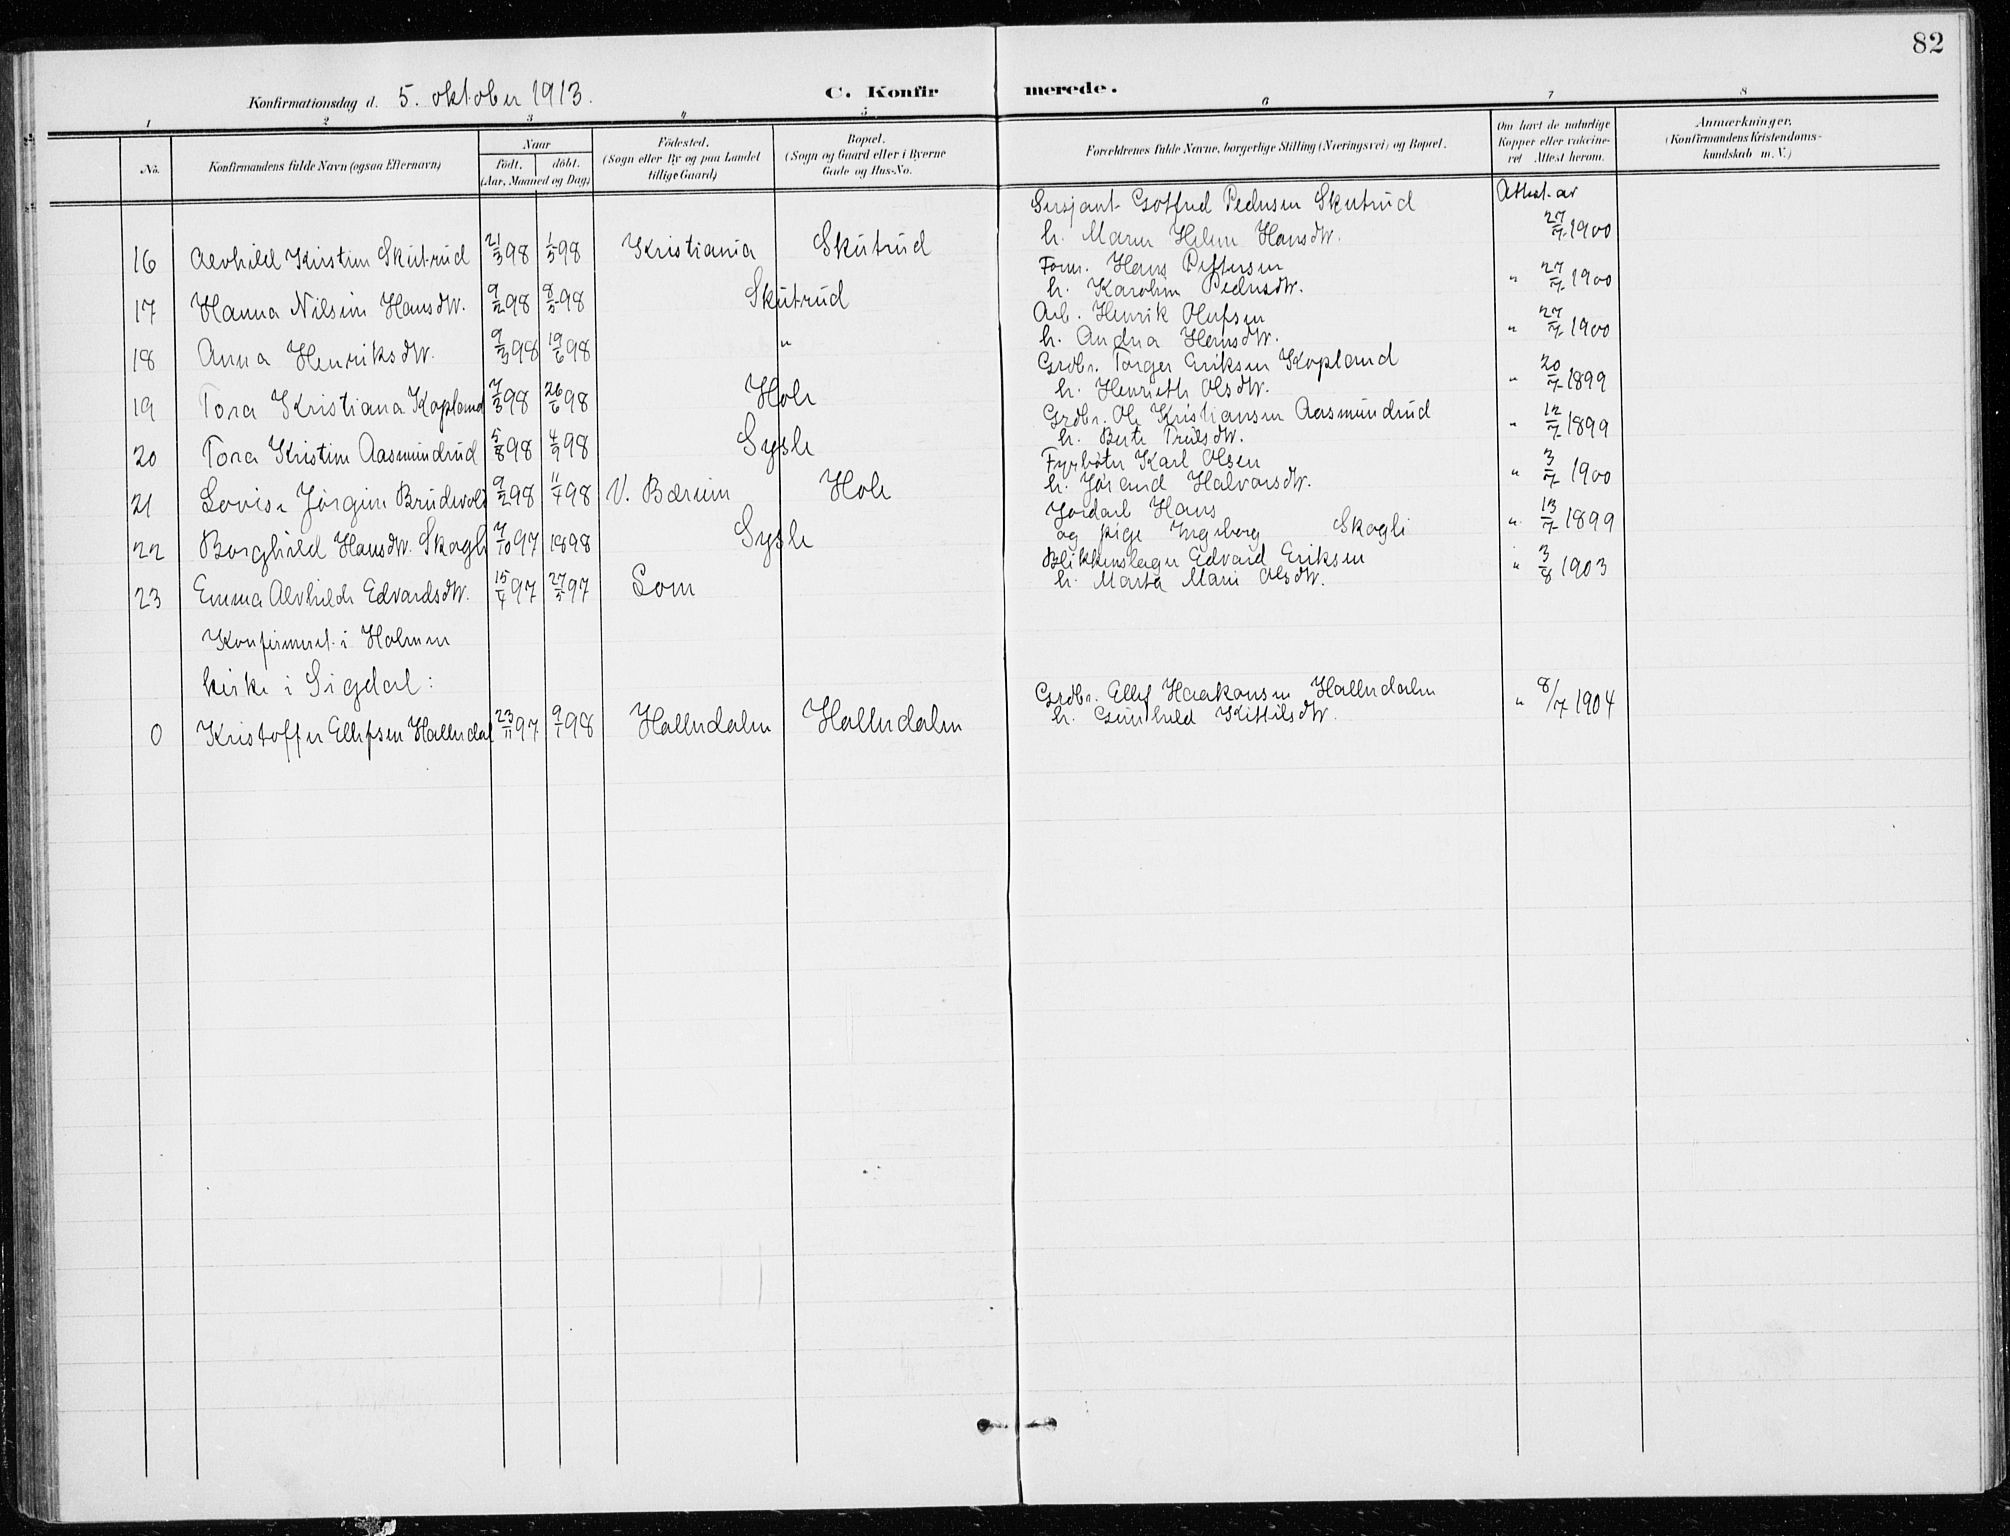 82
Konfirmationsdag d. 5. oktober 1913.
C. Konfirmerede.
1 2 3 4 5 6 7 8
No.
Konfirmandens fulde Navn (ogsaa Efternavn)
Naar
født. døbt.
(Aar, Maaned og Dag)
Fødested.
(Sogn eller By og paa Landet
tillige Gaard)
Bopæl.
(Sogn og Gaard eller i Byerne
Gade og Hus-No.
Forældrenes fulde Navne, borgerlige Stilling (Næringsvei) og Bopæl.
Om havt de naturlige
Kopper eller vakcine-
ret Attest herom.
Anmærkninger.
(Konfirmandens Kristendoms-
kundskab m. V.)
Sersjant Gotfred Pedersen Skutrud Attest av
16 Alvhild Kirstine Skutrud 21/3 98 1/5 98 Kristiania Skutrud h. Maren Helene Hansdtr. 27/7 1900
Form. Hans Pettersen
17 Hanna Nilsine Hansdtr. 9/2 98 8/5 98 Skutrud h. Karoline Pedersdtr. " 27/7 1900
Arb. Henrik Olufsen
18 Anna Henriksdtr. 9/3 98 19/6 98 " h. Andrea Hansdtr. " 27/7 1900
Grdbr. Torger Eriksen Kopland
19 Tora Kristiana Kopland 7/3 98 26/6 98 Hole h. Henriette Olsdtr. " 20/7 1899
Grdbr. Ole Kristiansen Aasmundrud
20 Tora Kristine Aasmundrud 5/8 98 4/9 98 Sysle h. Berte Trulsdtr. " 12/7 1899
Fyrbøter Karl Olsen
21 Lovise Jørgine Brudevold 9/2 98 11/4 98 V. Bærum Hole h. Jørand Halvorsdtr. " 3/7 1900
Jordarb. Hans
22 Borghild Hansdtr. Skogli 7/10 97 1898 Sysle og pige Ingeborg Skogli " 13/7 1899
Blikkenslager Edvard Eriksen
23 Emma Alvhilde Edvardsdtr. 15/4 97 27/5 97 Lom h. Marta Marie Olsdtr. " 3/8 1903
Konfirmeret i Holmen
kirke i Sigdal:
Grdbr. Ellef Haakonsen Hallendalen
0 Kristoffer Ellefsen Hallendal 23/11 97 9/1 98 Hallendalen Hallendalen h. Gunhild Kittilsdtr. " 8/7 1904